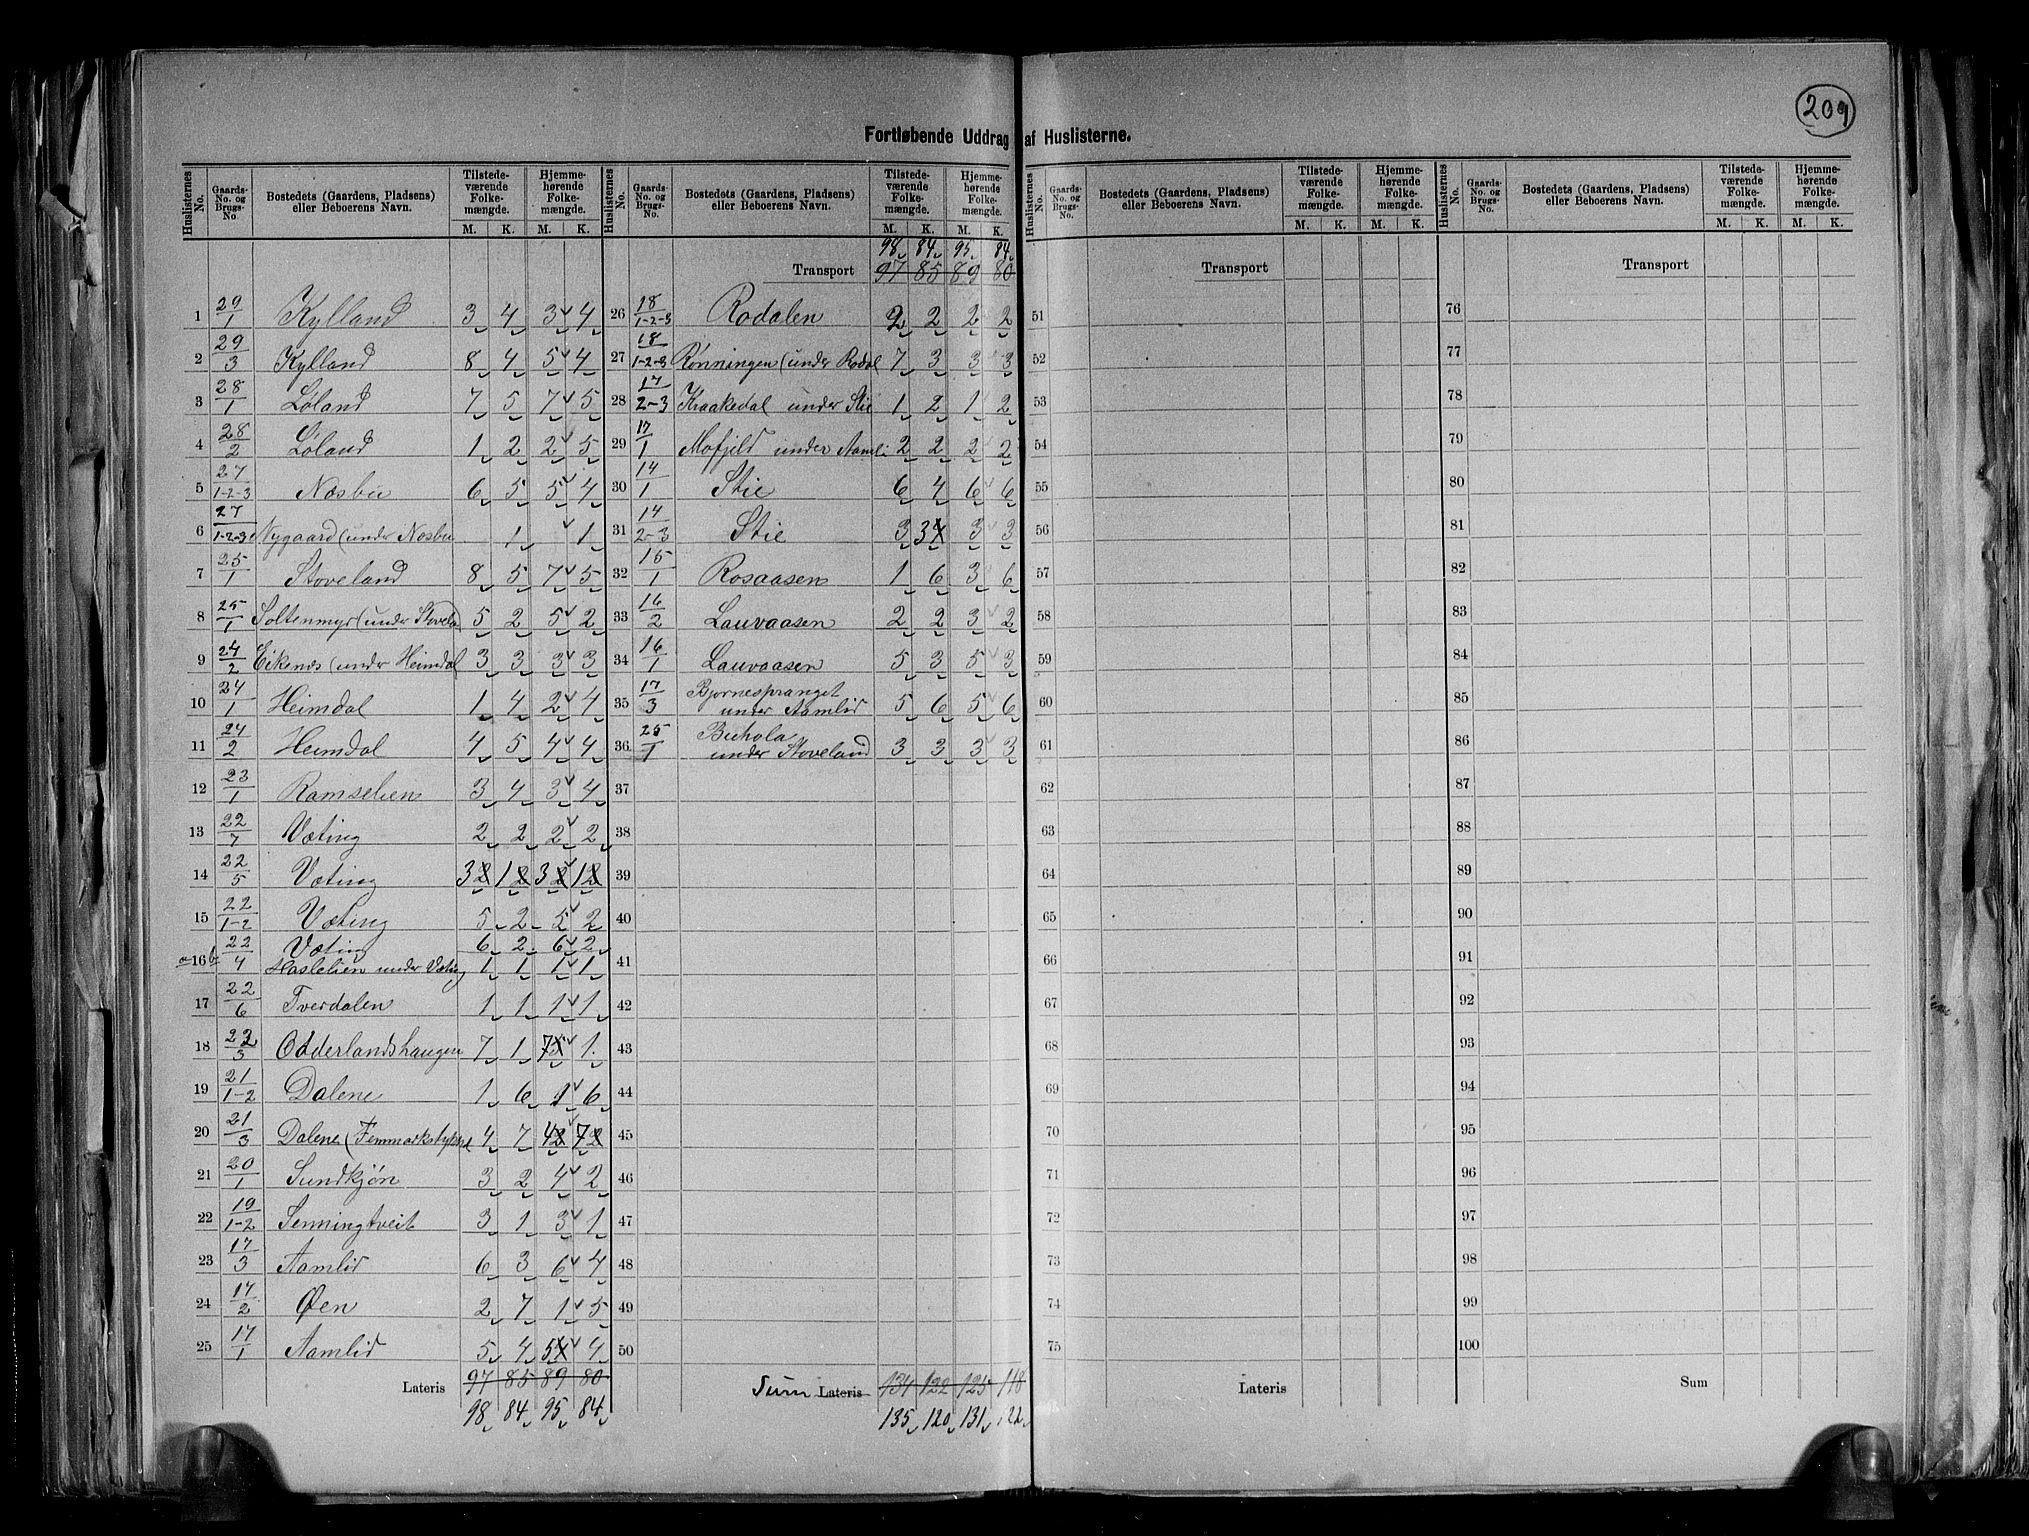 209
Fortløbende Uddrag af Huslisterne.
Huslisternes No. Gaards-No. og Brugs-No Bostedets (Gaardens, Pladsens) eller Beboerens Navn. Tilstedeværende Folkemængde. M. K. Hjemmehørende Folkemængde. M. K.
1 29/1 Kylland 3 4 3 4
2 29/3 Kylland 8 4 5 4
3 28/1 Løland 7 5 7 5
4 28/2 Løland 1 2 2 5
5 27/1-2-3 Næsbu 6 5 5 4
6 27/1-2-3 Nygaard (under Næsbu 1 1
7 25/1 Stoveland 8 5 7 5
8 25/1 Soltenmyr (under Stovela) 5 2 5 2
9 24/2 Eikenæs (under Heimdal 3 3 3 3
10 24/1 Heimdal 1 4 2 4
11 24/2 Heimdal 4 5 4 4
12 23/1 Ramselien 3 4 3 4
13 22/7 Væting 2 2 2 2
14 22/5 Væting 3 2 1 2 3 2 1 2
15 22/1-2 Væting 5 2 5 2
a 16 b 22/4 Væting 6 2 6 2
Haslelien under Væting 1 1 1 1
17 22/6 Tverdalen 1 1 1 1
18 22/3 Odderlandshaugen 7 1 7 5 1
19 21/1-2 Dalene 1 6 1 6
20 21/3 Dalene (Femmarkstykket 4 7 4 2 7 2
21 20/1 Sundkjøn 3 2 4 2
22 19/1-2 Senningtveit 3 1 3 1
23 17/3 Aamlid 6 3 6 4
24 17/2 Øen 2 7 1 5
25 17/1 Aamlid 5 4 5 4 4
Lateris 97 85 89 80
98 84 95 84
Huslisternes No. Gaards-No. og Brugs-No. Bostedets (Gaardens, Pladsens) eller Beboerens Navn. Tilstedeværende Folkemængde. M. K. Hjemmehørende Folkemængde. M. K.
98 84 95 84
Transport 97 85 89 80
26 18/1-2-3 Rodalen 2 2 2 2
27 18/1-2-3 Rønningen (under Rodal 7 3 3 3
28 17/2-3 Kraakedal under Stie 1 2 1 2
29 17/1 Mofjeld under Aamli 2 2 2 2
30 14/1 Stie 6 4 6 6
31 14/2-3 Stie 3 3 4 3 3
32 15/1 Rosaasen 1 6 3 6
33 16/2 Lauvaasen 2 2 3 2
34 16/1 Lauvaasen 5 3 5 3
35 17/3 Bjørnespranget
under Aamlid 5 6 5 6
36 25/1 Buhola
under Stoveland 3 3 3 3
37
38
39
40
41
42
43
44
45
46
47
48
49
50
Sum Lateris 134 122 125 118
135 120 131 122
Huslisternes No. Gaards-No. og Brugs-No. Bostedets (Gaardens, Pladsens) eller Beboerens Navn. Tilstedeværende Folkemængde. M. K. Hjemmehørende Folkemængde. M. K.
Transport
51
52
53
54
55
56
57
58
59
60
61
62
63
64
65
66
67
68
69
70
71
72
73
74
75
Lateris
Huslisternes No. Gaards-No. og Brugs-No. Bostedets (Gaardens, Pladsens) eller Beboerens Navn. Tilstedeværende Folkemængde. M. K. Hjemmehørende Folkemængde. M. K.
Transport
76
77
78
79
80
81
82
83
84
85
86
87
88
89
90
91
92
93
94
95
96
97
98
99
100
Sum